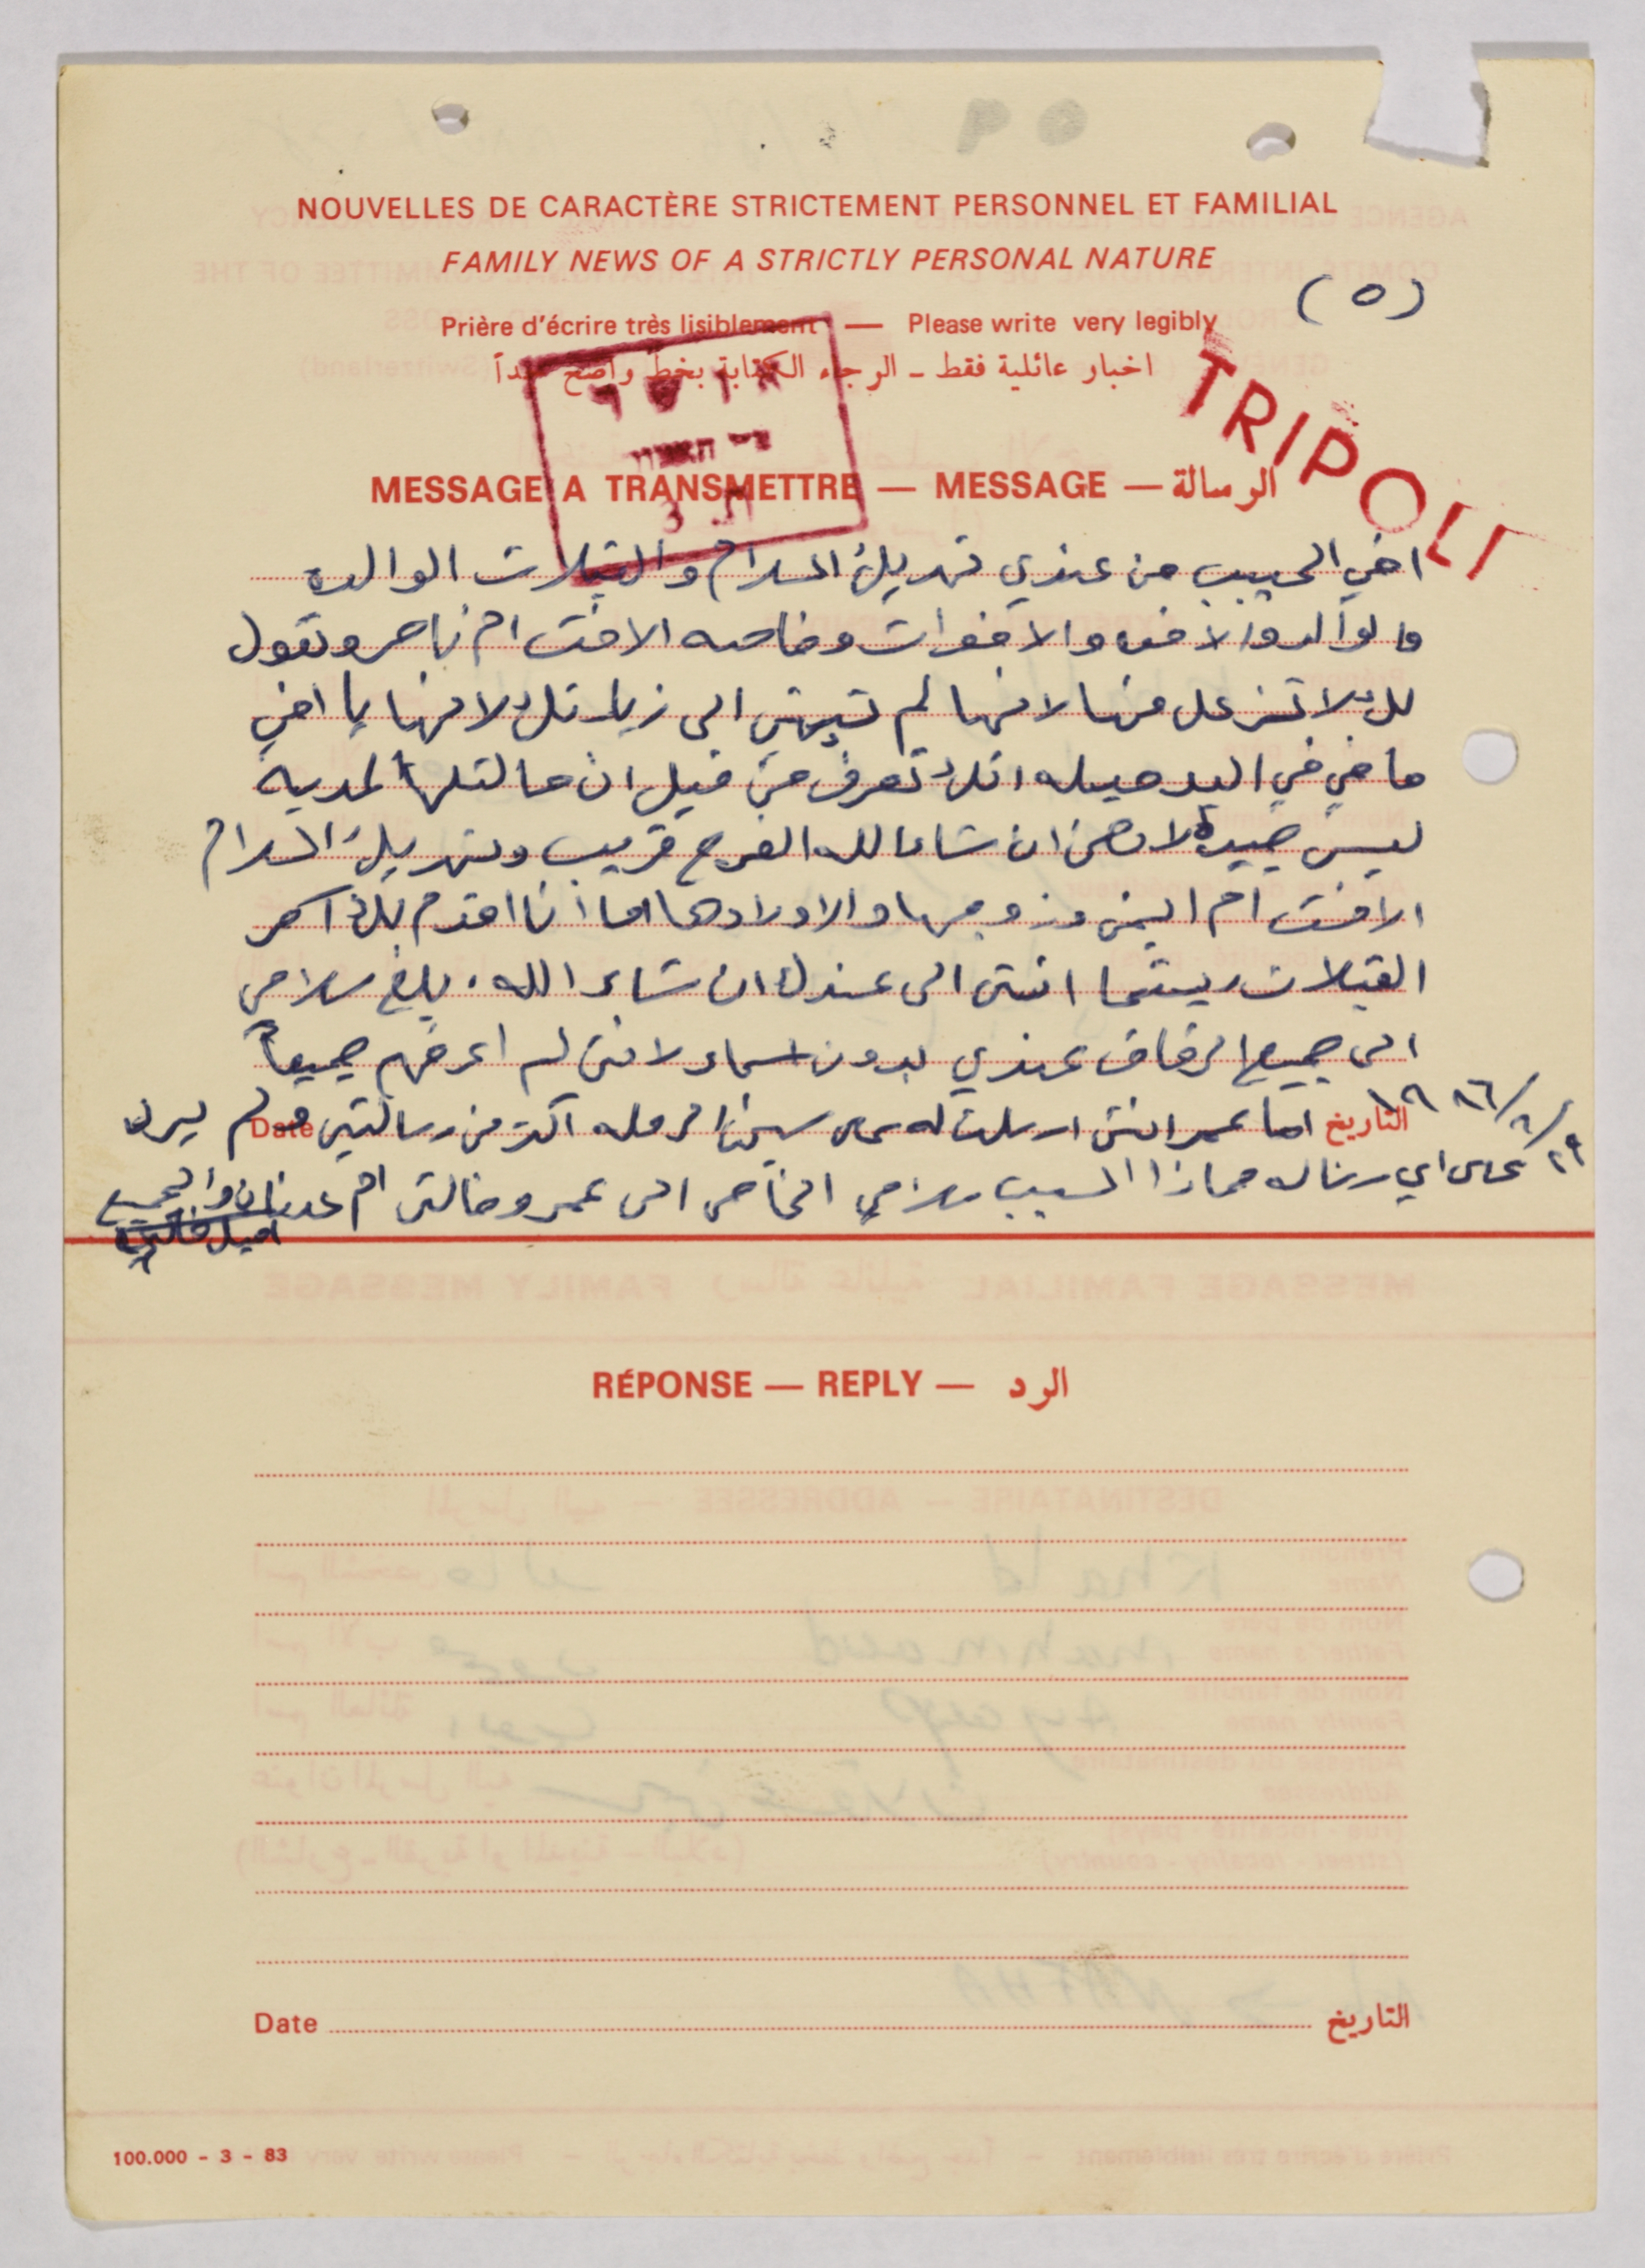 NOUVELLES DE CARACTÈRE STRICTEMENT PERSONNEL ET FAMILIAL
FAMILY NEWS OF A STRICTLY PERSONAL NATURE
(٥)
Prière d'écrire très lisiblement — Please write very legibly
اخبار عائلية فقط ـ الرجاء الكتابة بخط واضح جداً
TRIPOLI
MESSAGE A TRANSMETTRE — MESSAGE — الرسالة
اخي الحبيب من عندي تهديك السلام والقبلات الوالده
والوالد والاخوه والاخوات وخاصه الاخت ام ناصر وتقول
لك لا تزعل منها لانها لم تيجي الى زيارتك لانها يا اخي
ما في في اليد حيله انك تعرف من قبل ان حالتها المدية
ليس جيده لاكن ان شاء الله الفرج قريب وتهديك السلام
الاخت ام اليمن وزوجها والاولادها اما أنا اقدم لك احر
القبلات ريثما اتى الى عندك ان شاء الله. بلغ سلامي
الى جميع الرفاق عندي بدون اسماء لانني لم اعرفهم جميعاً
التاريخ ٢٩/٦/١٩٨٦ اما عمر انني ارسلت له على سجن الرمله اكثر من رسالتين ولم يرد Date
على اي رساله فماذا السبب سلامي الخاص الى عمر وخالتي ام عدنان والجميع
RÉPONSE — REPLY — الرد
Date التاريخ
100.000 - 3 - 83